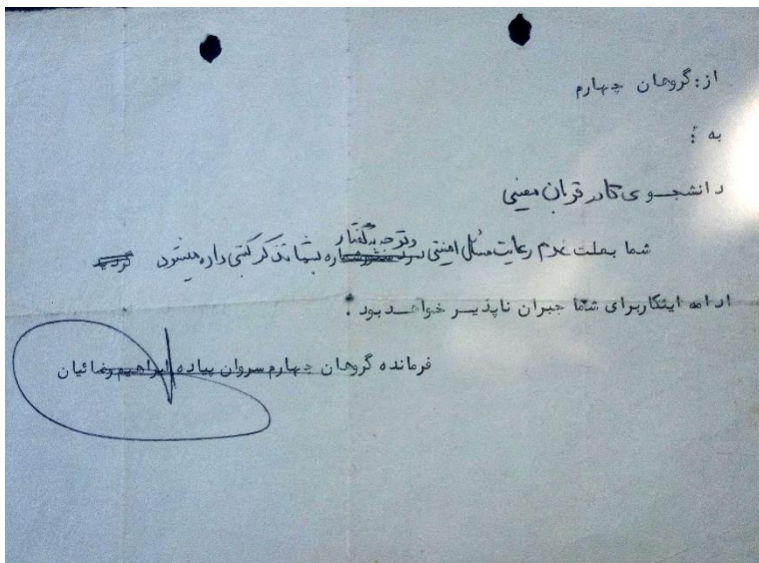 از: گروهان چهارم
به :
دانشجوی کادر قربان معینی
شما بعلت عدم رعایت مسائل امنیتی و توجه به گفتار بشما تذکر کتبی داده میشود
ادامه اینکار برای شما جبران ناپذیر خواهد بود .
فرمانده گروهان چهارم سروان پیاده ابراهیم رضائیان